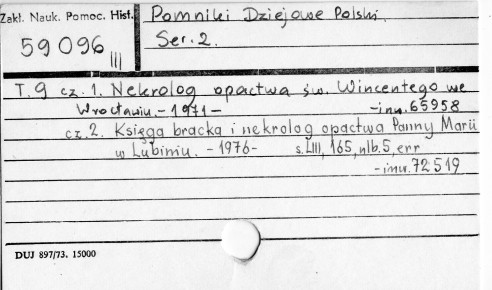 Zakł. Nauk. Pomoc. Hist.
59096 III
Pomniki Dziejowe Polski.
Ser. 2.
T. 9 cz. 1. Nekrolog opactwa św. Wincentego we
Wrocławiu. - 1971 - - inw. 65958
cz. 2. Księga bracka i nekrolog opactwa Panny Marii
w Lubiniu. - 1976 - s. LIII, 165, nlb. 5, err
- inw. 72519
DUJ 897/73. 15000